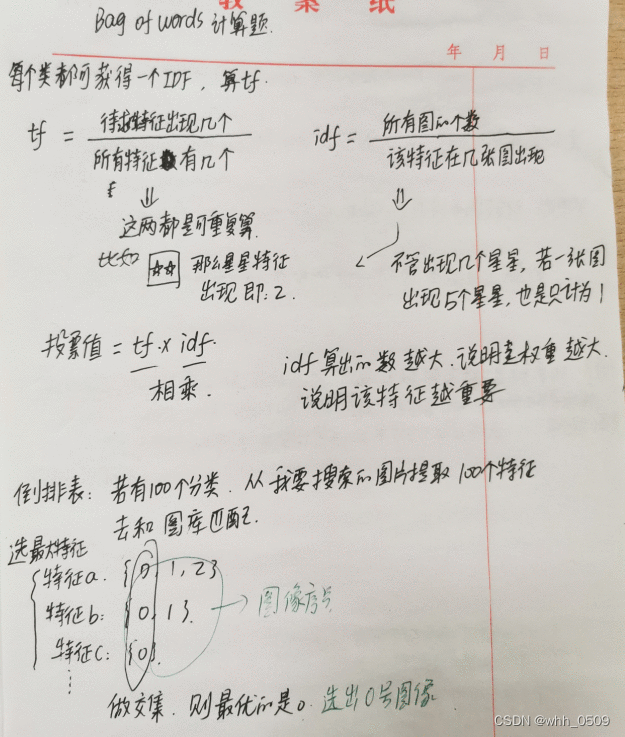 Bag of words 计算题.
年 月 日
每个类都可获得一个IDF, 算tf.
tf = 待求特征出现几个 / 所有特征有几个
idf = 所有图的个数 / 该特征在几张图出现
⇓
⇓
这两都是可重复算.
比如 ☆☆ 那么星星特征
出现即: 2.
不管出现几个星星, 若一张图
出现5个星星, 也是只计为1
投票值 = tf × idf.
相乘.
idf 算出的数越大, 说明权重越大.
说明该特征越重要
倒排表: 若有100个分类. 从我要搜索的图片提取100个特征
去和图库匹配.
选最大特征
特征a. {0, 1, 2}
特征b: {0, 1}. → 图像序号
特征c: {0}.
⋮
做交集. 则最优的是0. 选出0号图像.
CSDN @whh_0509